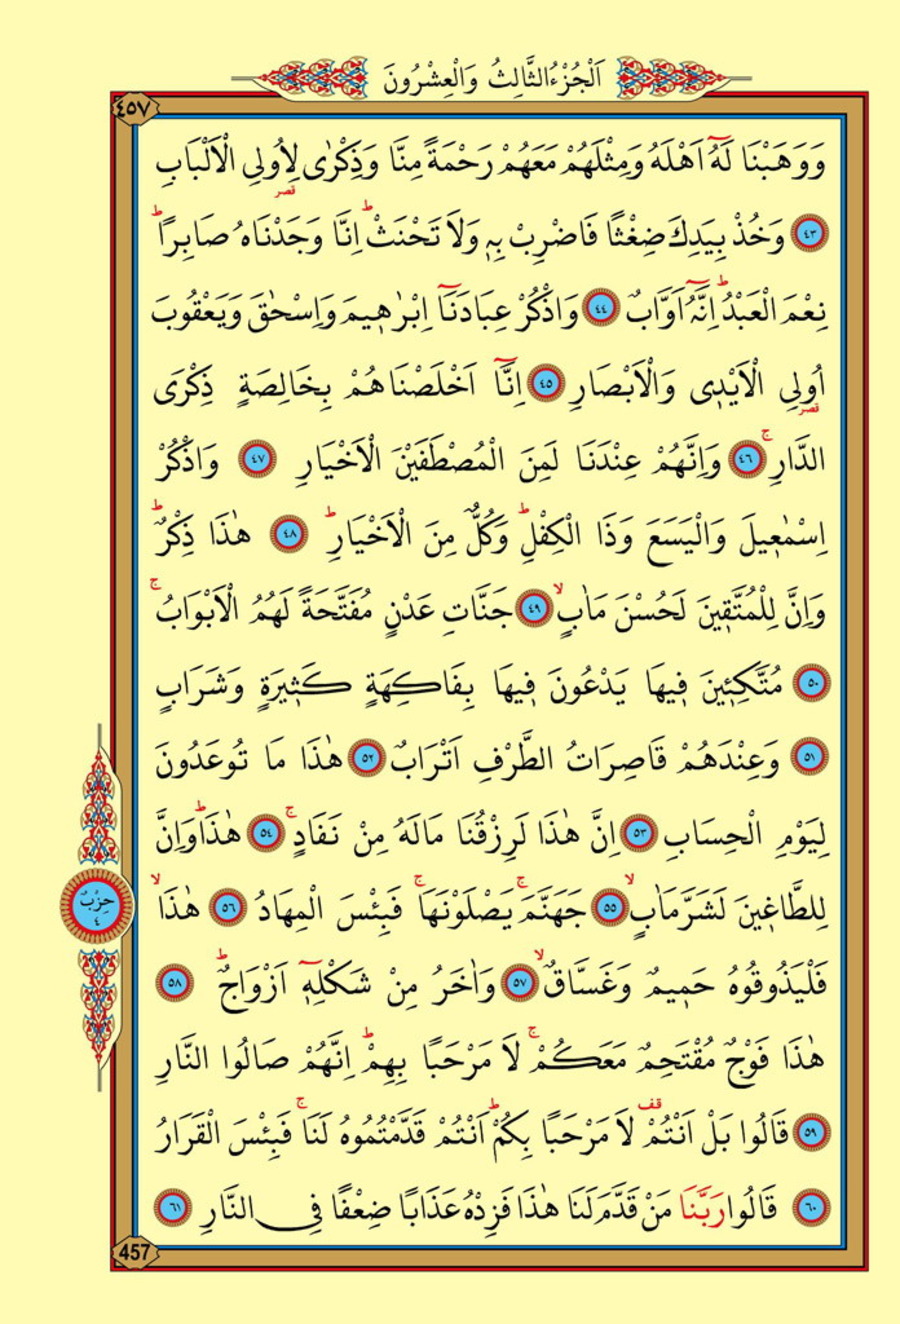 اَلْجُزْءُ الثَّالِثُ وَالْعِشْرُونَ
٤٥٧
وَوَهَبْنَا لَهُٓ اَهْلَهُ وَمِثْلَهُمْ مَعَهُمْ رَحْمَةً مِنَّا وَذِكْرٰى لِاُولِي الْاَلْبَابِ
قصر
﴿٤٣﴾ وَخُذْ بِيَدِكَ ضِغْثًا فَاضْرِبْ بِهٖ وَلَا تَحْنَثْ ط اِنَّا وَجَدْنَاهُ صَابِرًا ط
نِعْمَ الْعَبْدُ ط اِنَّهُٓ اَوَّابٌ ﴿٤٤﴾ وَاذْكُرْ عِبَادَنَٓا اِبْرٰهٖيمَ وَاِسْحٰقَ وَيَعْقُوبَ
اُولِي الْاَيْدٖي وَالْاَبْصَارِ ﴿٤٥﴾ اِنَّٓا اَخْلَصْنَاهُمْ بِخَالِصَةٍ ذِكْرَى
قصر
الدَّارِ ج ﴿٤٦﴾ وَاِنَّهُمْ عِنْدَنَا لَمِنَ الْمُصْطَفَيْنَ الْاَخْيَارِ ﴿٤٧﴾ وَاذْكُرْ
اِسْمٰعٖيلَ وَالْيَسَعَ وَذَا الْكِفْلِ ط وَكُلٌّ مِنَ الْاَخْيَارِ ط ﴿٤٨﴾ هٰذَا ذِكْرٌ ط
وَاِنَّ لِلْمُتَّقٖينَ لَحُسْنَ مَاٰبٍ لا ﴿٤٩﴾ جَنَّاتِ عَدْنٍ مُفَتَّحَةً لَهُمُ الْاَبْوَابُ ج
﴿٥٠﴾ مُتَّكِـٖٔينَ فٖيهَا يَدْعُونَ فٖيهَا بِفَاكِهَةٍ كَثٖيرَةٍ وَشَرَابٍ
﴿٥١﴾ وَعِنْدَهُمْ قَاصِرَاتُ الطَّرْفِ اَتْرَابٌ ﴿٥٢﴾ هٰذَا مَا تُوعَدُونَ
لِيَوْمِ الْحِسَابِ ﴿٥٣﴾ اِنَّ هٰذَا لَرِزْقُنَا مَالَهُ مِنْ نَفَادٍ ج ﴿٥٤﴾ هٰذَا ط وَاِنَّ
لِلطَّاغٖينَ لَشَرَّ مَاٰبٍ لا ﴿٥٥﴾ جَهَنَّمَ ج يَصْلَوْنَهَا ج فَبِئْسَ الْمِهَادُ ﴿٥٦﴾ هٰذَا لا
حِزْبٌ
٤
فَلْيَذُوقُوهُ حَمٖيمٌ وَغَسَّاقٌ لا ﴿٥٧﴾ وَاٰخَرُ مِنْ شَكْلِهٖٓ اَزْوَاجٌ ط ﴿٥٨﴾
هٰذَا فَوْجٌ مُقْتَحِمٌ مَعَكُمْ ج لَا مَرْحَبًا بِهِمْ ط اِنَّهُمْ صَالُوا النَّارِ
﴿٥٩﴾ قَالُوا بَلْ اَنْتُمْ قف لَا مَرْحَبًا بِكُمْ ط اَنْتُمْ قَدَّمْتُمُوهُ لَنَا ج فَبِئْسَ الْقَرَارُ
﴿٦٠﴾ قَالُوا رَبَّنَا مَنْ قَدَّمَ لَنَا هٰذَا فَزِدْهُ عَذَابًا ضِعْفًا فِي النَّارِ ﴿٦١﴾
457